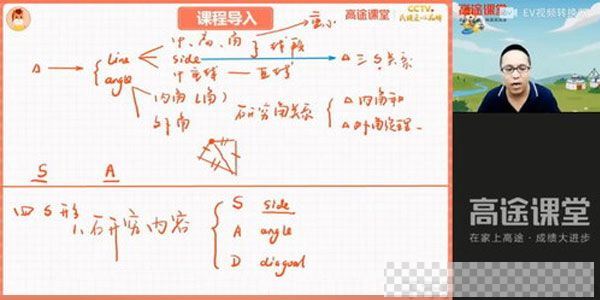 课程导入
高途课堂
CCTV
高途课堂
EV视频转换器
line
中、高、角 } 线段
side
△三S关系
A → {
angle
中垂线 — 直线
内角（角）
外角
研究角关系
△内角和
△外角定理
S A
四S形
1、研究内容
S side
A angle
D diagonal
高途课堂
在家上高途·成绩大进步